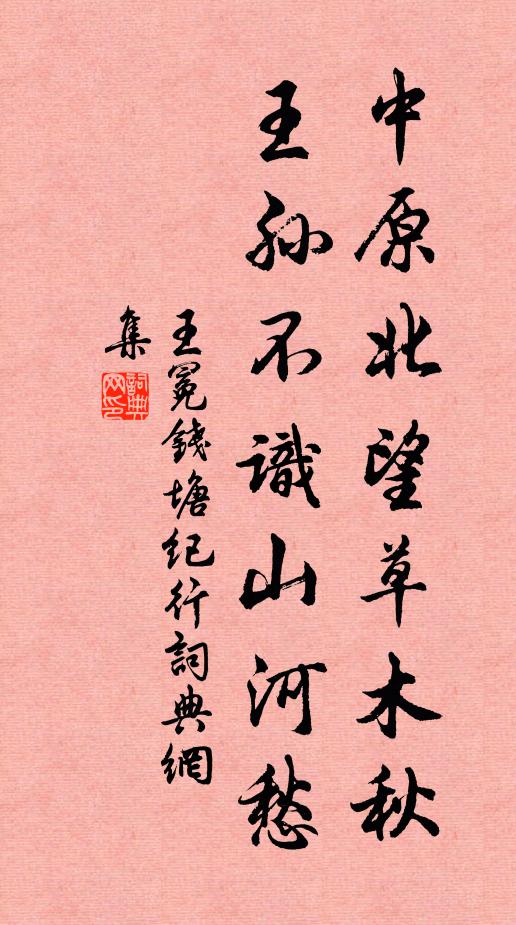 中原北望草木秋
王孫不識山河愁
王冕錢塘紀行詞典網
集
詞典
网印